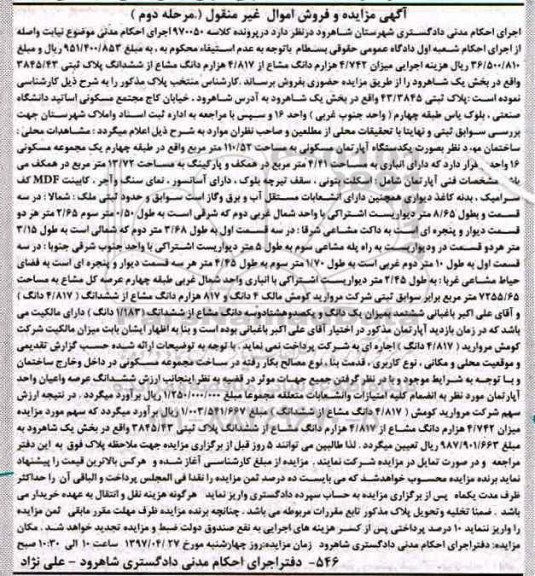 آگهی مزایده و فروش اموال غیر منقول (.مرحله دوم )
اجرای احکام مدنی دادگستری شهرستان شاهرود درنظر دارد درپرونده کلاسه ۹۷۰۰۵۰ اجرای احکام مدنی موضوع نیابت واصله
از اجرای احکام شعبه اول دادگاه عمومی حقوقی بسطام باتوجه به عدم استیفاء محکوم به ، به مبلغ ۹۵۱/۴۰۰/۸۵۳ ریال و مبلغ
۳۶/۵۰۰/۸۱۰ ریال هزینه اجرایی میزان ۴/۷۴۲ هزارم دانگ مشاع از ۴/۸۱۷ هزارم دانگ مشاع از ششدانگ پلاک ثبتی ۳۸۴۵/۴۳
واقع در بخش یک شاهرود را از طریق مزایده حضوری بفروش برساند .کارشناس منتخب پلاک مذکور را به شرح ذیل کارشناسی
نموده است :پلاک ثبتی ۴۳/۳۸۴۵ واقع در بخش یک شاهرود به آدرس شاهرود ، خیابان کاج مجتمع مسکونی اساتید دانشگاه
صنعتی ، بلوک یاس طبقه چهارم ( واحد جنوب غربی ) واحد ۱۶ و سپس با مراجعه به اداره ثبت اسناد واملاک شهرستان جهت
بررسی سوابق ثبتی و نهایتا با تحقیقات محلی از مطلعین و صاحب نظران موارد به شرح ذیل اعلام میگردد : مشاهدات محلی :
ساختمان مورد نظر بصورت یکدستگاه آپارتمان مسکونی به مساحت ۱۱۰/۵۲ متر مربع واقع در طبقه چهارم یک مجموعه مسکونی
۱۶ واحدی قرار دارد که دارای انباری به مساحت ۴/۴۱ متر مربع در همکف و پارکینگ به مساحت ۱۳/۷۲ متر مربع در همکف می
باشد مشخصات فنی آپارتمان شامل : اسکلت بتونی ، سقف تیرچه بلوک ، دارای آسانسور ، نمای سنگ وآجر ، کابینت MDF کف
سرامیک ، بدنه کاغذ دیواری همچنین دارای انشعابات مستقل آب و برق وگاز است سوابق و حدود ثبتی ملک : شمالا : در سه
قسمت و بطول ۸/۶۵ متر دیواریست اشتراکی با واحد شمال غربی دوم که شرقی است به طول ۰/۵۰ متر سوم ۲/۶۵ متر هر دو
قسمت دیوار و پنجره ای است به داکت مشاعی شرقا : در سه قسمت اول به طول ۳/۶۸ متر دوم که شمالی است به طول ۳/۱۵
متر هردو قسمت در ودیواریست به راه پله مشاعی سوم به طول ۵ متر دیواریست اشتراکی با واحد جنوب شرقی جنوبا : در سه
قسمت اول به طول ۱۰ متر دوم غربی است به طول ۱/۷۰ متر سوم به طول ۴/۴۵ متر هر سه قسمت دیوار و پنجره ای است به فضای
حیاط مشاعی غربا : به طول ۲/۴۵ متر دیواریست اشتراکی با انباری واحد شمال غربی طبقه چهارم عرصه کل مشاع به مساحت
۷۲۵۵/۶۵ متر مربع برابر سوابق ثبتی شرکت مروارید کومش مالک ۴ دانگ و ۸۱۷ هزارم دانگ مشاع از ششدانگ ( ۴/۸۱۷ دانگ )
و آقای علی اکبر باغبانی ششتمد بمیزان یک دانگ و یکصدوهشتادوسه دانگ مشاع از ششدانگ (۱/۱۸۳ دانگ ) دارای مالکیت می
باشد که در زمان بازدید آپارتمان مذکور در اختیار آقای علی اکبر باغبانی بوده است و بنا به اظهار ایشان بابت میزان مالکیت شرکت
کومش مروارید ( ۴/۸۱۷ دانگ ) اجاره ای به شرکت پرداخت نمی نماید . با توجه به توضیحات ارائه شده حسب گزارش تقدیمی
و موقعیت محلی و مکانی ، نوع کاربری ، قدمت بنا ، نوع مصالح بکار رفته در ساخت مجموعه مسکونی در داخل وخارج ساختمان
و با توجه به شرایط موجود و با در نظر گرفتن جمیع جهات موثر در قضیه به نظر اینجانب ارزش ششدانگ عرصه واعیان واحد
آپارتمان مورد نظر به انضمام کلیه امتیازات وانشعابات متعلقه مجموعا مبلغ ۱/۲۵۰/۰۰۰/۰۰۰ ریال برآورد میگردد . در نتیجه ارزش
سهم شرکت مروارید کومش ( ۴/۸۱۷ دانگ مشاع از ششدانگ ) مبلغ ۱/۰۰۳/۵۴۱/۶۶۷ ریال برآورد میگردد که سهم مورد مزایده
میزان ۴/۷۴۲ هزارم دانگ مشاع از ۴/۸۱۷ هزارم دانگ مشاع از ششدانگ پلاک ثبتی ۳۸۴۵/۴۳ واقع در بخش یک شاهرود به
مبلغ ۹۸۷/۹۰۱/۶۶۳ ریال تعیین میگردد . لذا طالبین می توانند ۵ روز قبل از برگزاری مزایده جهت ملاحظه پلاک فوق به این دفتر
مراجعه و در صورت تمایل در مزایده شرکت نمایند . مزایده از مبلغ کارشناسی آغاز شده و هرکس بالاترین قیمت را پیشنهاد
نماید برنده مزایده محسوب خواهدشد که می بایست ده درصد ثمن مزایده را نقدا فی المجلس پرداخت و الباقی آن را حداکثر
ظرف مدت یکماه پس از برگزاری مزایده به حساب سپرده دادگستری واریز نماید هرگونه هزینه نقل و انتقال به عهده خریدار می
باشد . ضمنا تخلیه و تحویل پلاک مذکور تابع مقررات مربوطه می باشد . چنانچه برنده مزایده ظرف مهلت مقرر مابقی ثمن مزایده
را واریز ننماید ۱۰ درصد پرداختی پس از کسر هزینه های اجرایی به نفع صندوق دولت ضبط و مزایده تجدید خواهد شد . مکان
مزایده: دفتراجرای احکام مدنی دادگستری شاهرود زمان مزایده:روز چهارشنبه مورخ ۲۷ /۱۳۹۷/۰۴ ساعت ۱۰ الی ۱۰:۳۰ صبح
۵۴۶- دفتراجرای احکام مدنی دادگستری شاهرود – علی نژاد